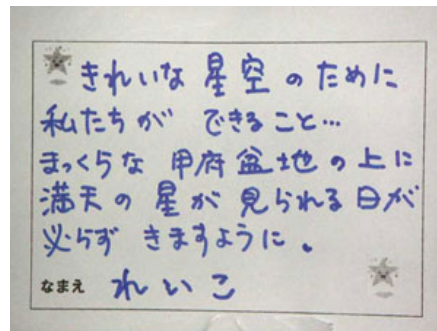 きれいな 星空 のために
私たちが できること…
まっくらな 甲府盆地の上に
満天の星が見られる日が
必らず きますように。
なまえ れいこ